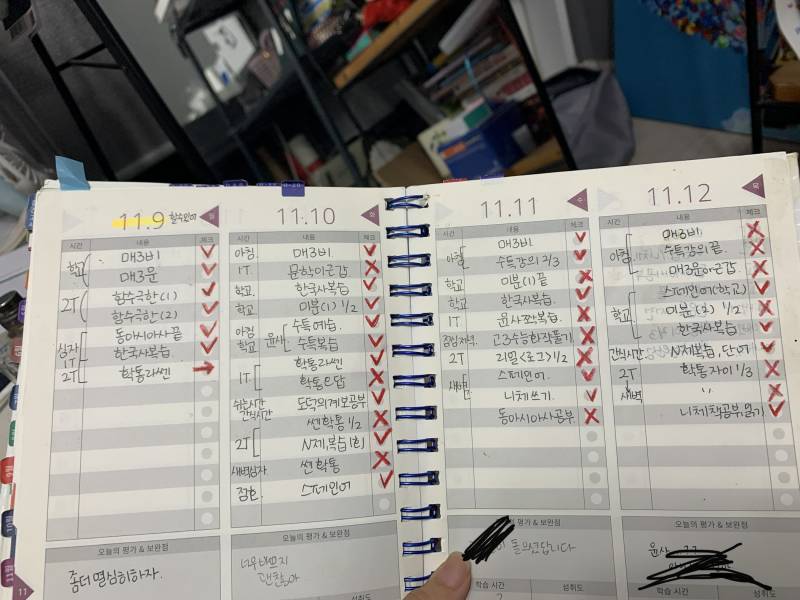 11.9 함수위어
월
시간 내용 체크
학교 매3비
매3문
2T 함수극한(1)
함수극한(2)
심자 동아시아사 끝
1T 한국사복습
2T 학통라쎈
오늘의 평가 & 보완점
좀더 열심히하자.
11
11.10
화
시간 내용 체크
아침 매3비
1T 문학이근갑
학교 한국사복습
학교 미분(1) 1/2
아침 수특예습.
학교 윤사 수특복습
학통라쎈
1T 학통오답
쉬는시간 도덕의계보공부
간식시간 쎈학통 1/2
2T N제복습 1회
새벽심자 쎈학통
점심 스페인어
오늘의 평가 & 보완점
너무바쁘지
괜찮아
11.11
수
시간 내용 체크
아침 매3비
수특강의 2/3
학교 미분(1)끝
학교 한국사복습
1T 윤사쪼복습
점심저녁 고3수능희작풀기
2T 리밀<로그>1/2
새벽 스페인어.
니체쓰기.
동아시아사공부
오늘의 평가 & 보완점
돌았답니다
학습 시간 성취도
11.12
목
시간 내용 체크
아침 매3비
수특강의끝.
매3문이근갑.
학교 스페인어(학교)
미분(2) 1/2
한국사복습
간식시간 N제복습, 단어
2T 학통자이 1/3
새벽 〃
니체책공부,읽기
오늘의 평가 & 보완점
윤사
학습 시간 성취도